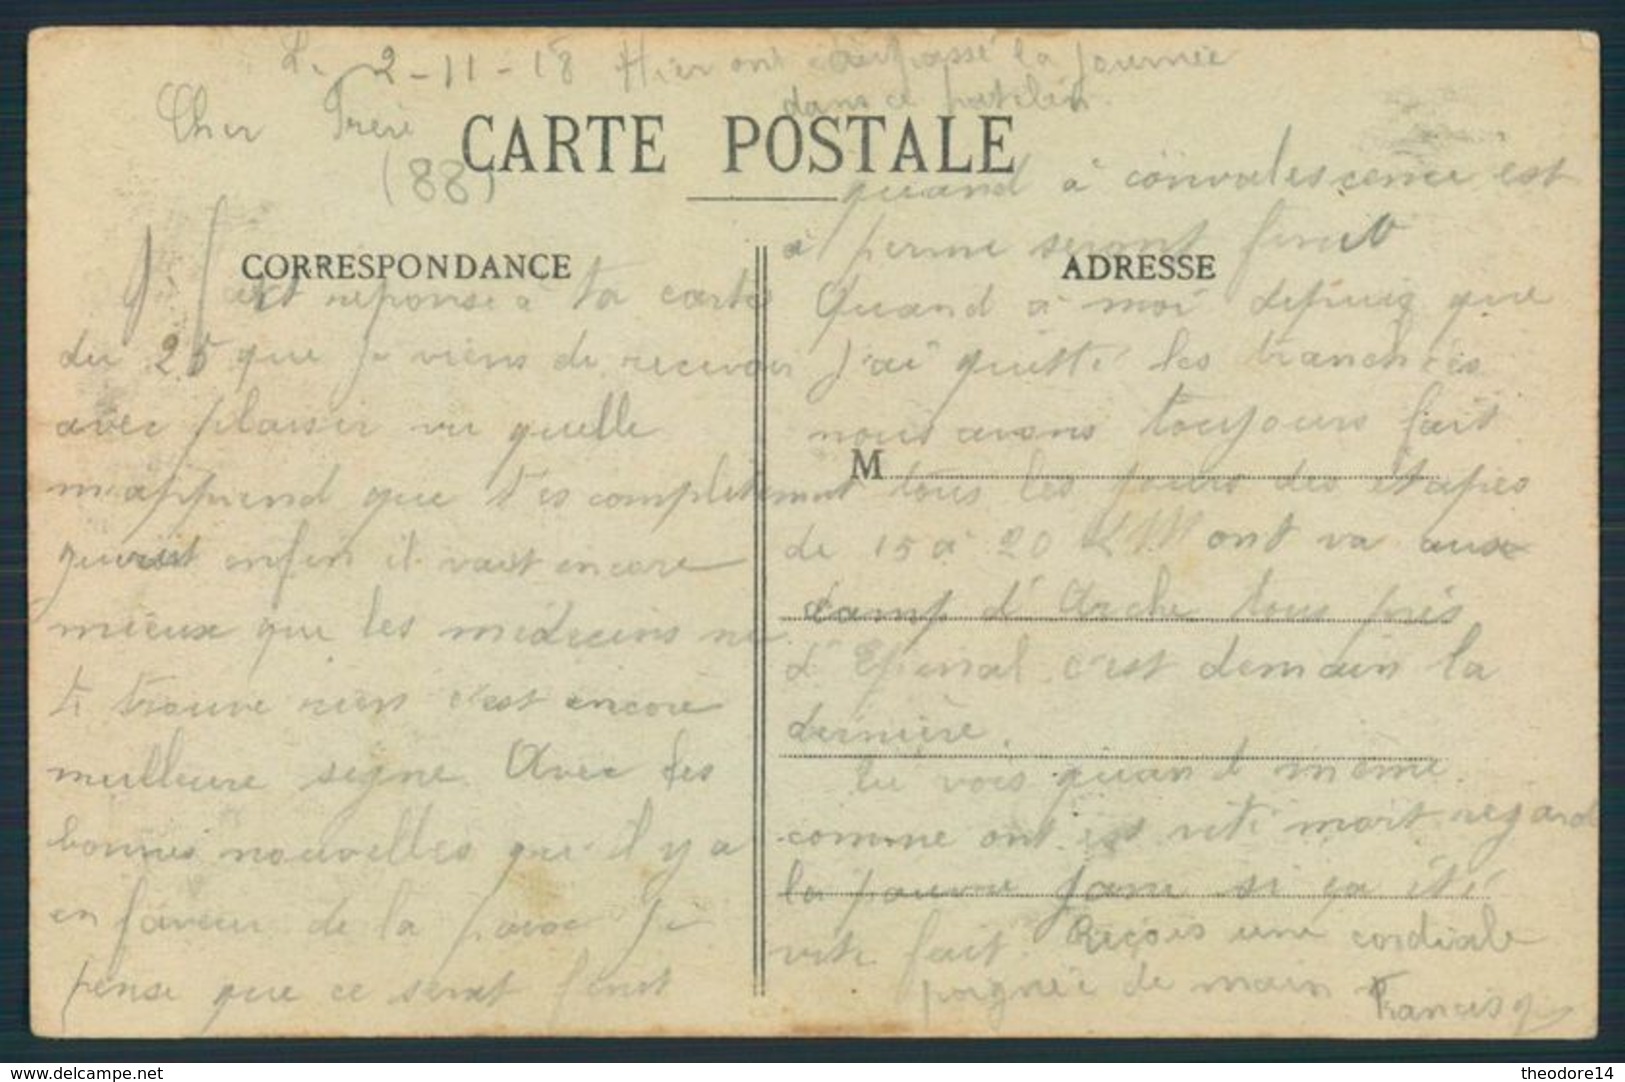 L. 2-11-18 Hier ont passé la journée
dans ce patelin.
Cher Frère
CARTE POSTALE
(88)
CORRESPONDANCE
J. fait reponse à ta carte
du 25 que je viens de recevoir
avec plaisir vu quelle
m'apprend que t'es completement
guerist enfin il vaut encore
mieux que les médecins ne
te trouve rien c'est encore
meilleure signe. Avec les
bonnes nouvelles qu'il y a
en faveur de la paix je
pense que ce serat finit
quand à convalescence est
à perme seront finit
ADRESSE
Quand à moi depuis que
j'ai quitté les tranchées
nous avons toujours fait
M
tous les jours des étapes
de 15 à 20 KM ont va aux
camp d'Arche tous près
d'Epinal c'est demain la
dernière.
tu vois quand même
comme ont est vite mort regard
la pauvre Jane si ça été
vite fait. Reçois une cordiale
poignée de main
Francisq
www.delcampe.net
theodore14